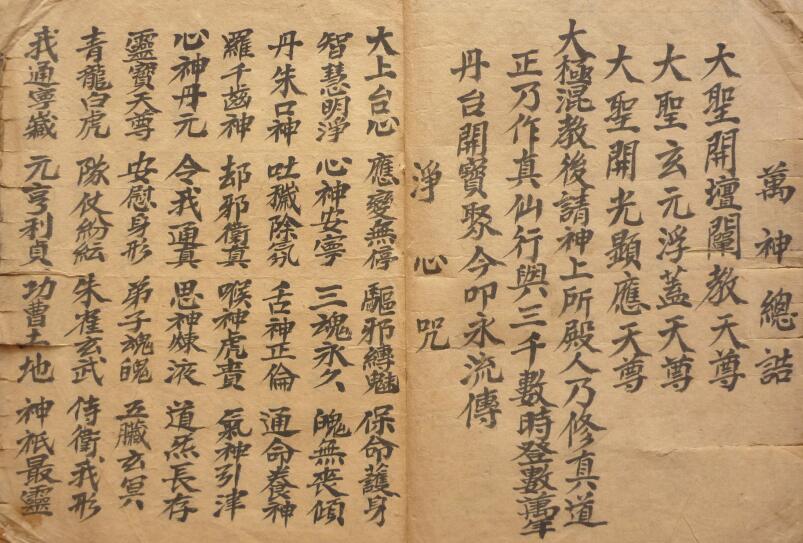 萬神總誥
大聖開壇闡教天尊
大聖玄元浮蓋天尊
大聖開光顯應天尊
大極混教後請神上所殿人乃修真道
正乃作真仙行與三千數時登數萬年
丹台開寶聚今叩永流傳
淨心咒
大上台心 應變無停 驅邪縛魅 保命護身
智慧明淨 心神安寧 三魂永久 魄無喪傾
丹朱口神 吐穢除氛 舌神正倫 通命養神
羅千齒神 却邪衛真 喉神虎賁 氣神引津
心神丹元 令我通真 思神煉液 道炁長存
靈寶天尊 安慰身形 弟子魂魄 五臟玄冥
青龍白虎 隊仗紛紜 朱雀玄武 侍衛我形
我通寧藏 元亨利貞 功曹土地 神祇最靈